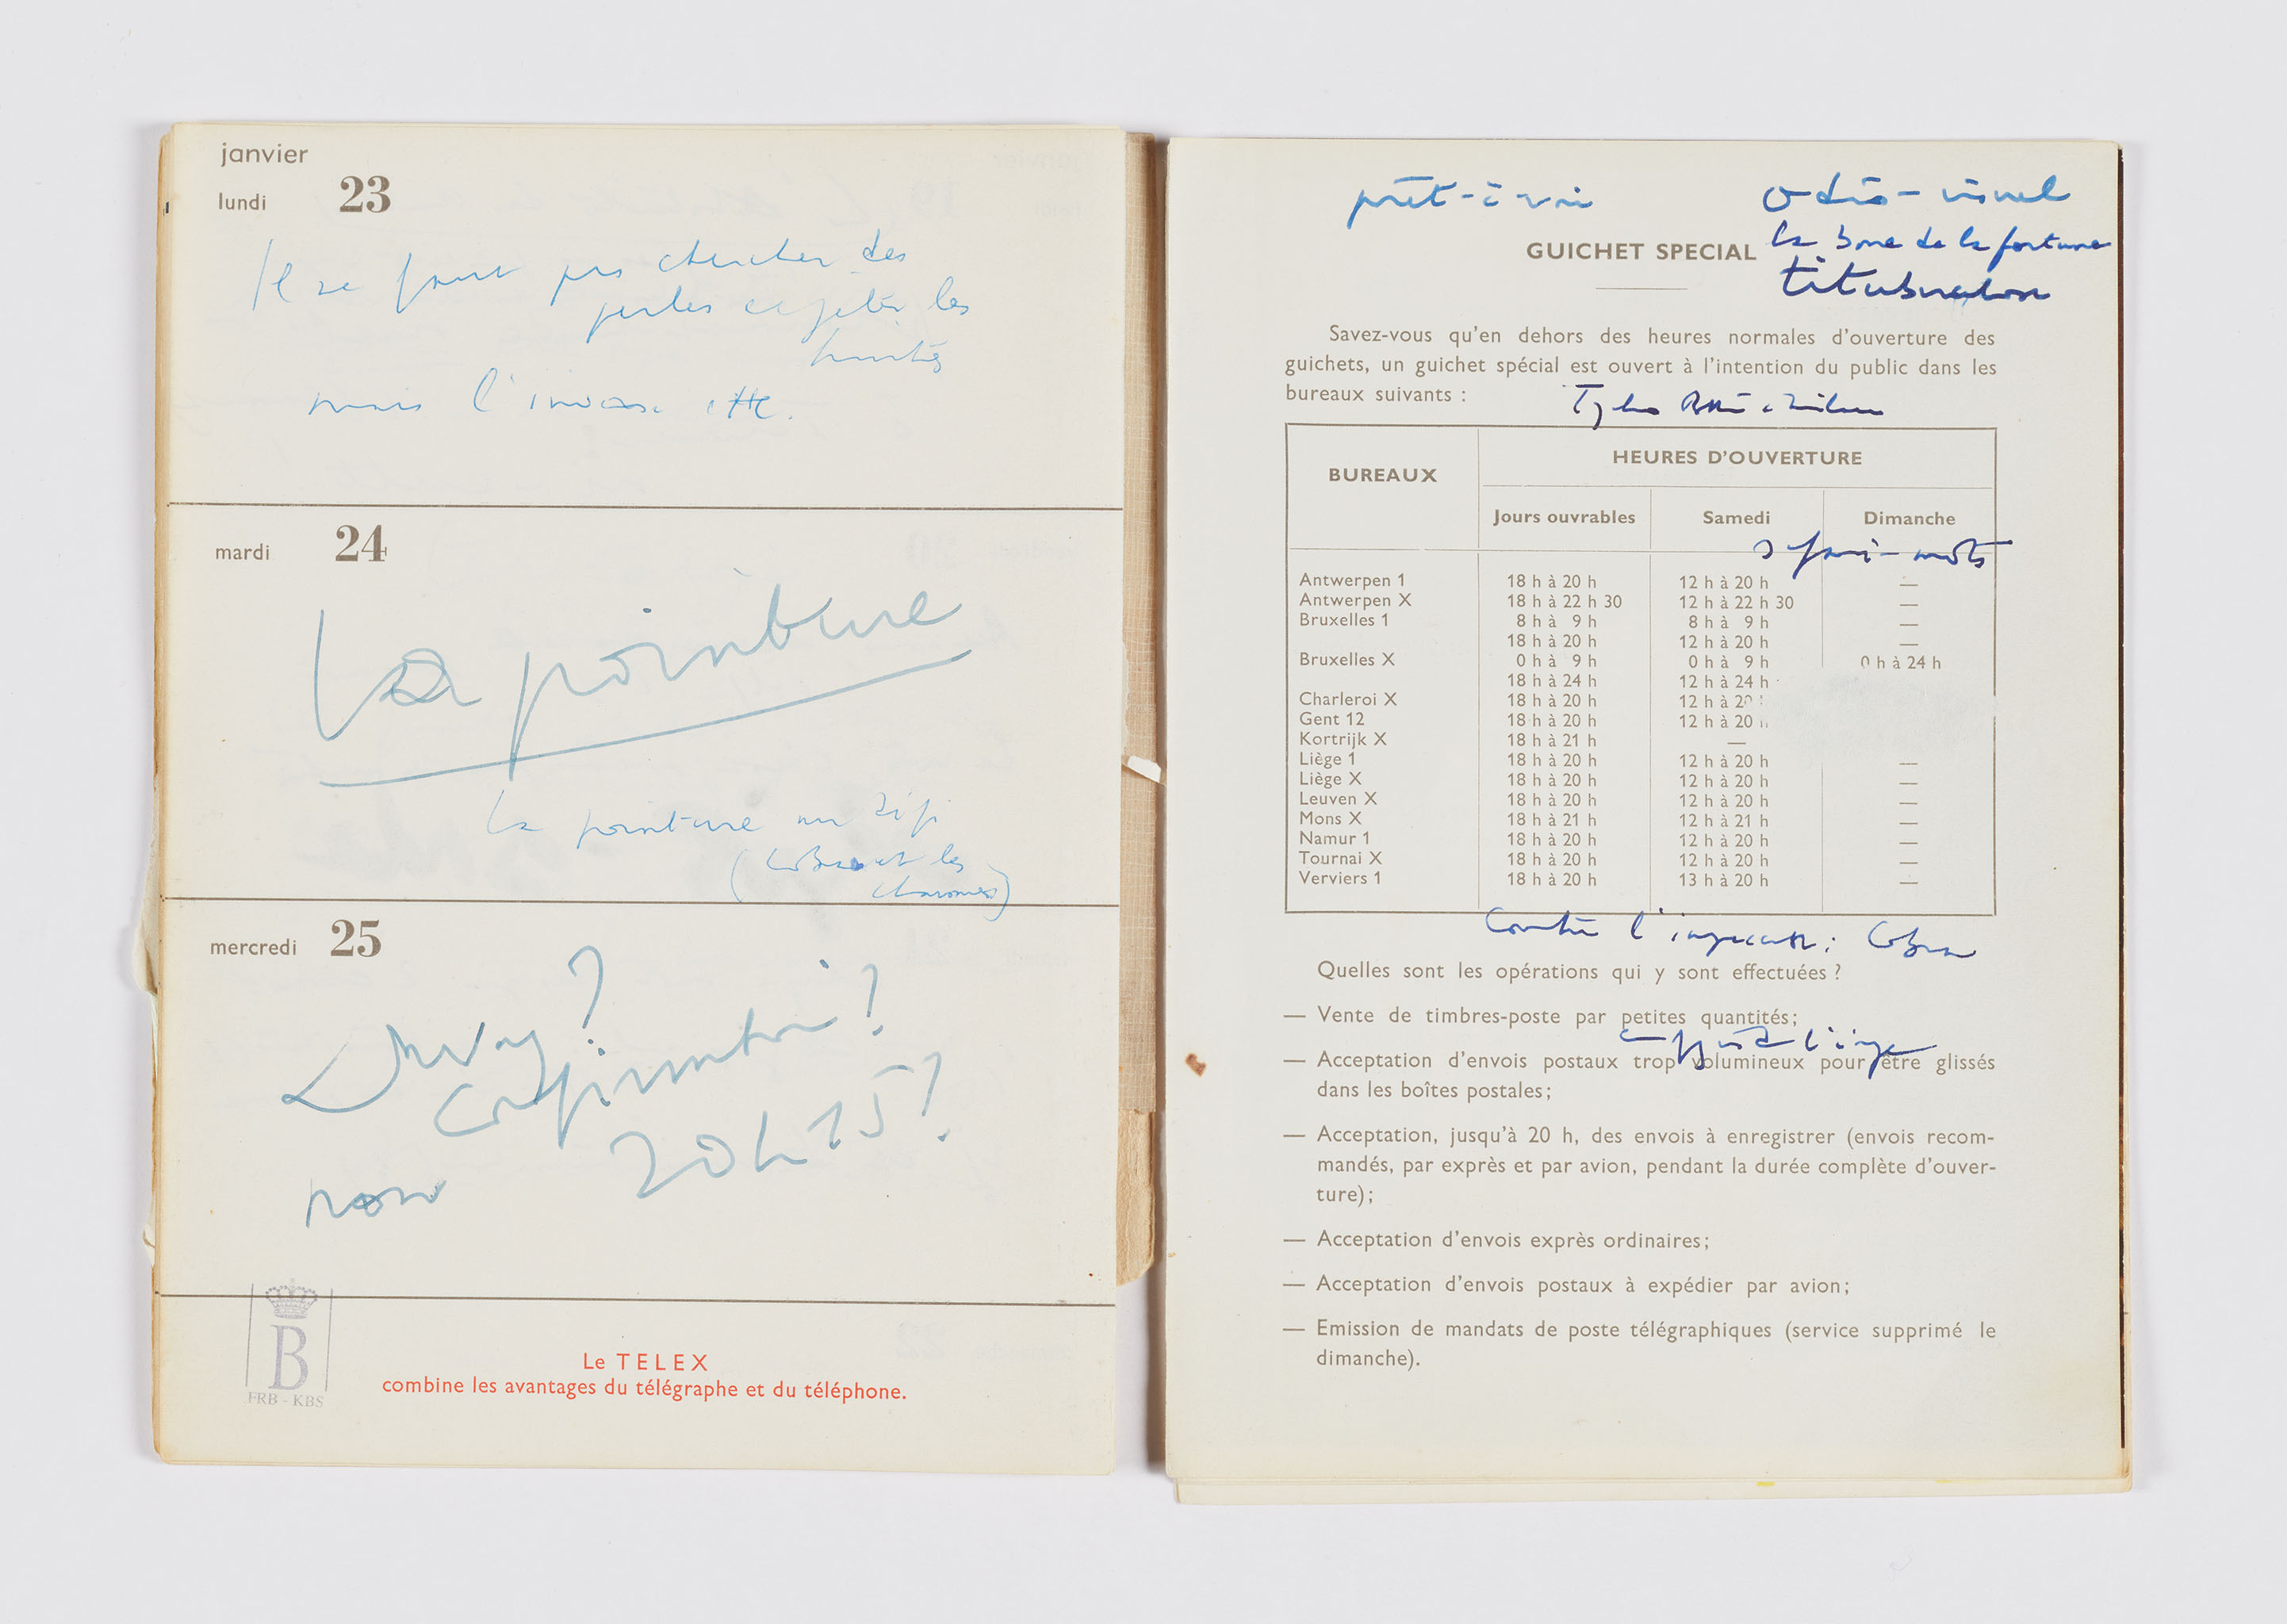 janvier
lundi 23
Il ne faut pas chercher des
perles et jeter les
huîtres
mais l'inverse etc.
mardi 24
La pointure
la pointure
(Cobra et les
mercredi 25
?
Confirmation?
non 20h15?
Le TELEX
combine les avantages du télégraphe et du téléphone.
B
FRB - KBS
prêt-à- odio-visuel
la boue de la fortune
GUICHET SPECIAL
titubation
Savez-vous qu'en dehors des heures normales d'ouverture des
guichets, un guichet spécial est ouvert à l'intention du public dans les
bureaux suivants :
BUREAUX HEURES D'OUVERTURE
Jours ouvrables Samedi Dimanche
safari-mots
Antwerpen 1 18 h à 20 h 12 h à 20 h —
Antwerpen X 18 h à 22 h 30 12 h à 22 h 30 —
Bruxelles 1 8 h à 9 h 8 h à 9 h —
18 h à 20 h 12 h à 20 h —
Bruxelles X 0 h à 9 h 0 h à 9 h 0 h à 24 h
18 h à 24 h 12 h à 24 h
Charleroi X 18 h à 20 h 12 h à 20
Gent 12 18 h à 20 h 12 h à 20 h
Kortrijk X 18 h à 21 h —
Liège 1 18 h à 20 h 12 h à 20 h —
Liège X 18 h à 20 h 12 h à 20 h —
Leuven X 18 h à 20 h 12 h à 20 h —
Mons X 18 h à 21 h 12 h à 21 h —
Namur 1 18 h à 20 h 12 h à 20 h —
Tournai X 18 h à 20 h 12 h à 20 h —
Verviers 1 18 h à 20 h 13 h à 20 h —
Contre l' : Cobra
Quelles sont les opérations qui y sont effectuées ?
— Vente de timbres-poste par petites quantités;
— Acceptation d'envois postaux trop volumineux pour être glissés
dans les boîtes postales;
— Acceptation, jusqu'à 20 h, des envois à enregistrer (envois recom-
mandés, par exprès et par avion, pendant la durée complète d'ouver-
ture);
— Acceptation d'envois exprès ordinaires;
— Acceptation d'envois postaux à expédier par avion;
— Emission de mandats de poste télégraphiques (service supprimé le
dimanche).